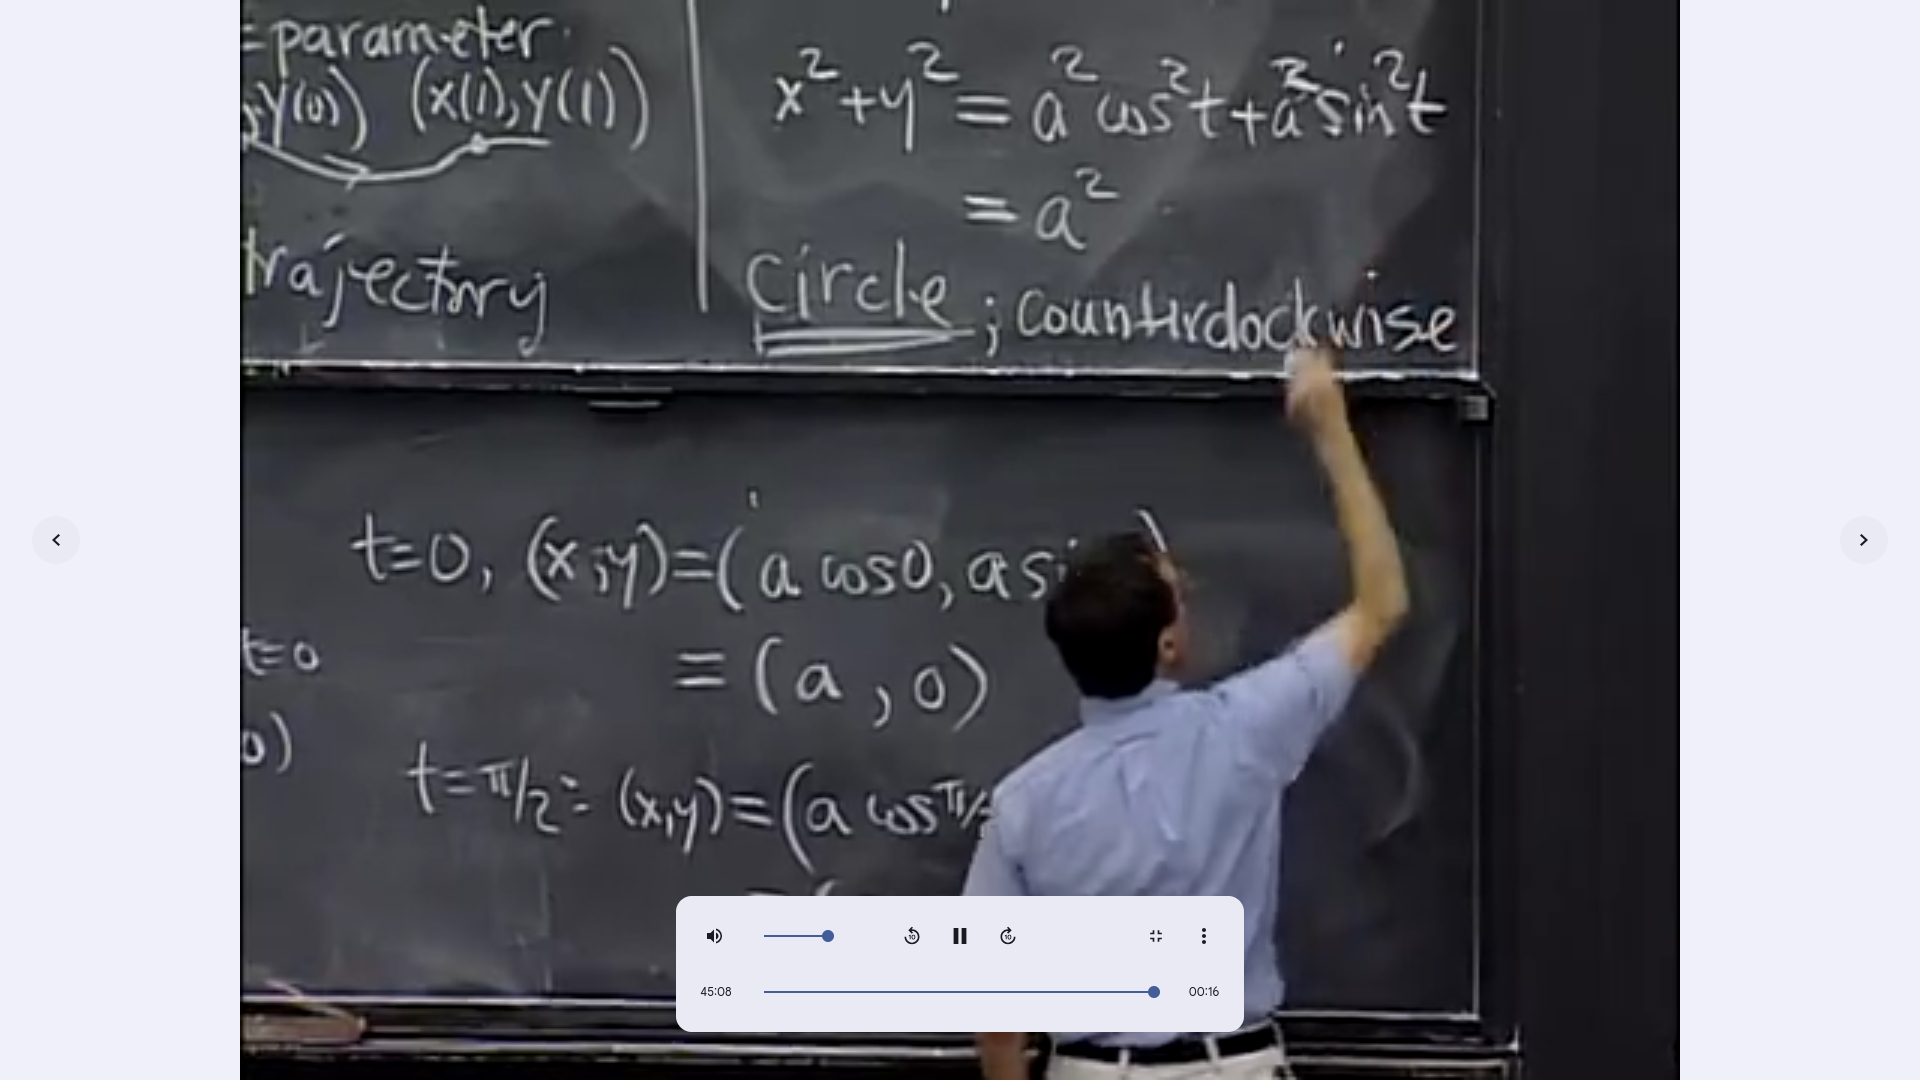 = parameter.
y(0)) (x(1), y(1))
trajectory
x²+y² = a² cos²t + a² sin²t
= a²
circle ; counterclockwise
t=0, (x,y)=( a cos0, a si
= (a , 0)
t=0
0)
t=π/2: (x,y)=(a cos π/2
10
10
45:08
00:16